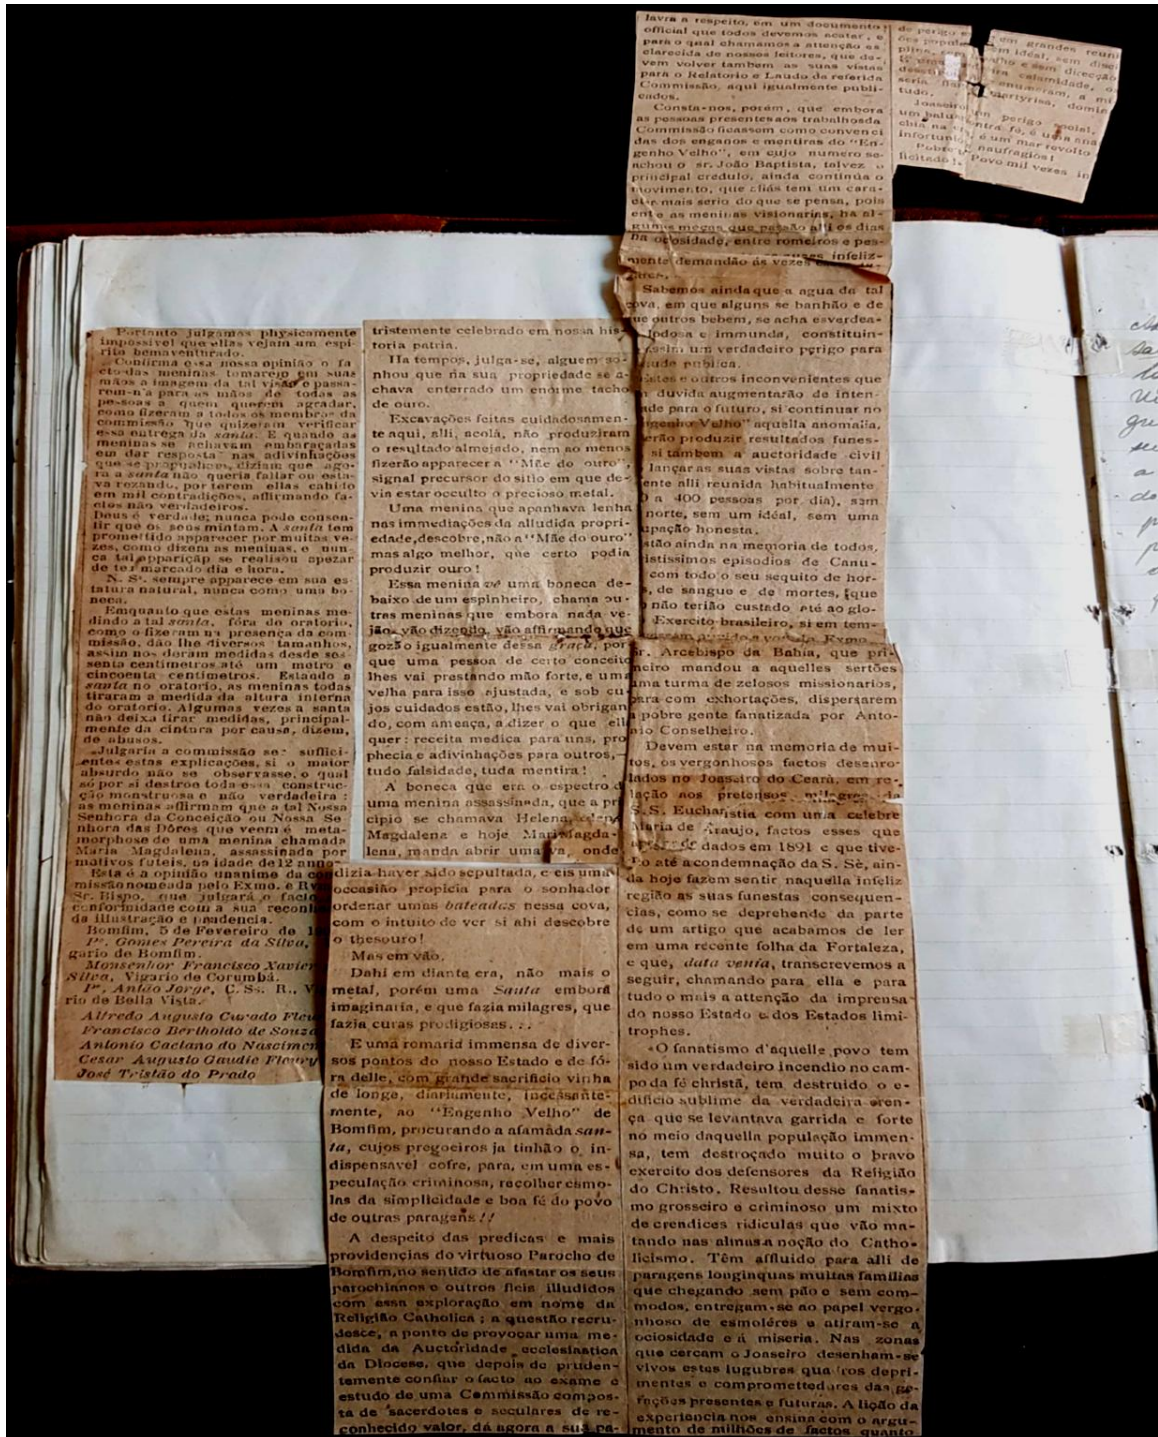 Portanto julgamos physicamente
impossivel que ellas vejam um espi-
rito bemaventurado.
Confirma essa nossa opinião o fa
cto das meninas tomarem em suas
mãos a imagem da tal visão e passa-
rem-n'a para as mãos de todas as
pessoas a quem querem agradar,
como fizeram a todos os membros da
commissão que quizeram verificar
essa entrega da santa. E quando as
meninas se achavam embaraçadas
em dar resposta nas adivinhações
que se propunham, diziam que ago-
ra a santa não queria fallar ou esta-
va rezando, por terem ellas cahido
em mil contradições, affirmando fa-
ctos não verdadeiros.
Deus é verdade; nunca pode consen-
tir que os seus mintam. A santa tem
promettido apparecer por muitas ve-
zes, como dizem as meninas, e nun-
ca tal apparição se realisou apezar
de ter marcado dia e hora.
N. Sª. sempre apparece em sua es-
tatura natural, nunca como uma bo-
neca.
Emquanto que estas meninas me-
dindo a tal santa, fóra do oratorio,
como o fizeram na presença da com-
missão, dão lhe diversos tamanhos,
assim nos deram medidas desde ses-
senta centimetros até um metro e
cincoenta centimetros. Estando a
santa no oratorio, as meninas todas
tiraram a medida da altura interna
do oratorio. Algumas vezes a santa
não deixa tirar medidas, principal-
mente da cintura por causa, dizem,
de abusos.
Julgaria a commissão ser suffici-
entes estas explicações, si o maior
absurdo não se observasse, o qual
só por si destroe toda essa construc-
ção monstruosa e não verdadeira:
as meninas affirmam que a tal Nossa
Senhora da Conceição ou Nossa Se-
nhora das Dôres que veem é meta-
morphose de uma menina chamada
Maria Magdalena, assassinada por
motivos futeis, na idade de 12 anno
Esta é a opinião unanime da com
missão nomeada pelo Exmo. e Rv
Sr. Bispo, que julgará o facto
conformidade com a sua reconh
da illustração e prudencia.
Bomfim, 5 de Fevereiro de 1
Pe. Gomes Pereira da Silva,
gario de Bomfim.
Monsenhor Francisco Xavier
Silva, Vigario de Corumbá.
Pe. Antão Jorge, C. Ss. R., V
rio de Bella Vista.
Alfredo Augusto Curado Fleu
Francisco Bertholdo de Souza
Antonio Caetano do Nascimen
Cesar Augusto Gaudie Fleury
José Tristão do Prado
tristemente celebrado em nossa his-
toria patria.
Ha tempos, julga-se, alguem so-
nhou que na sua propriedade se a-
chava enterrado um enorme tacho
de ouro.
Excavações feitas cuidadosamen-
te aqui, alli, acolá, não produziram
o resultado almejado, nem ao menos
fizerão apparecer a "Mãe do ouro",
signal precursor do sitio em que de-
via estar occulto o precioso metal.
Uma menina que apanhava lenha
nas immediações da alludida propri-
edade, descobre, não a "Mãe do ouro"
mas algo melhor, que certo podia
produzir ouro!
Essa menina vê uma boneca de-
baixo de um espinheiro, chama ou-
tras meninas que embora nada ve-
jão, vão dizendo, vão affirmando que
gozão igualmente dessa graça, por
que uma pessoa de certo conceito
lhes vai prestando mão forte, e uma
velha para isso ajustada, e sob cu-
jos cuidados estão, lhes vai obrigan
do, com ameaça, a dizer o que ell
quer: receita medica para uns, pro
phecia e adivinhações para outros,—
tudo falsidade, tuda mentira!
A boneca que era o espectro d
uma menina assassinada, que a pri
cipio se chamava Helena,
Magdalena e hoje Maria Magda-
lena, manda abrir uma, onde
dizia haver sido sepultada, e eis uma
occasião propicia para o sonhador
ordenar umas bateadas nessa cova,
com o intuito de ver si ahi descobre
o thesouro!
Mas em vão.
Dahi em diante era, não mais o
metal, porém uma Santa embora
imaginaria, e que fazia milagres, que
fazia curas prodigiosas...
E uma romaria immensa de diver-
sos pontos do nosso Estado e de fó-
ra delle, com grande sacrificio vinha
de longe, diariamente, incessante-
mente, ao "Engenho Velho" de
Bomfim, procurando a afamada san-
ta, cujos pregoeiros ja tinhão o in-
dispensavel cofre, para, em uma es-
peculação criminosa, recolher esmo-
las da simplicidade e boa fé do povo
de outras paragens!!
A despeito das predicas e mais
providencias do virtuoso Parocho de
Bomfim, no sentido de afastar os seus
parochianos e outros fieis illudidos
com essa exploração em nome da
Religião Catholica; a questão recru-
desce, a ponto de provocar uma me-
dida da Auctoridade ecclesiastica
da Diocese, que depois de pruden-
temente confiar o facto ao exame e
estudo de uma Commissão compos-
ta de sacerdotes e seculares de re-
conhecido valor, dá agora a sua pa-
lavra a respeito, em um documento
official que todos devemos acatar, e
para o qual chamamos a attenção es
clarecida de nossos leitores, que de-
vem volver tambem as suas vistas
para o Relatorio e Laudo da referida
Commissão, aqui igualmente publi-
cados.
Consta-nos, porém, que embora
as pessoas presentes aos trabalhos da
Commissão ficassem como convenci
das dos enganos e mentiras do "En-
genho Velho", em cujo numero se
achou o sr. João Baptista, talvez o
principal credulo, ainda continúa o
movimento, que aliás tem um cara-
cter mais serio do que se pensa, pois
entre as meninas visionarias, ha al-
gumas moças que passão alli os dias
na ociosidade, entre romeiros e pes-
infeliz-
mente demandão ás vezes
Sabemos ainda que a agua da tal
cova, em que alguns se banhão e de
que outros bebem, se acha esverdea-
lodosa e immunda, constituin-
assim um verdadeiro perigo para
saude publica.
Estes e outros inconvenientes que
m duvida augmentarão de inten-
ade para o futuro, si continuar no
ngenho Velho" aquella anomalia,
erão produzir resultados funes-
si tambem a auctoridade civil
lançar as suas vistas sobre tan-
ente alli reunida habitualmente
0 a 400 pessoas por dia), sem
norte, sem um idéal, sem uma
upação honesta.
stão ainda na memoria de todos,
istissimos episodios de Canu-
com todo o seu sequito de hor-
s, de sangue e de mortes, que
não terião custado até ao glo-
Exercito brasileiro, si em tem-
a voz da Exmo.
Sr. Arcebispo da Bahia, que pri-
meiro mandou a aquelles sertões
uma turma de zelosos missionarios,
para com exhortações, dispersarem
a pobre gente fanatizada por Anto-
nio Conselheiro.
Devem estar na memoria de mui-
tos, os vergonhosos factos desenro-
lados no Joaseiro do Ceará, em re-
lação aos pretensos milagres da
S.S. Eucharistia com uma celebre
Maria de Araujo, factos esses que
dados em 1891 e que tive-
ão até a condemnação da S. Sè, ain-
da hoje fazem sentir naquella infeliz
região as suas funestas consequen-
cias, como se deprehende da parte
de um artigo que acabamos de ler
em uma recente folha da Fortaleza,
e que, data venia, transcrevemos a
seguir, chamando para ella e para
tudo o mais a attenção da imprensa
do nosso Estado e dos Estados limi-
trophes.
«O fanatismo d'aquelle povo tem
sido um verdadeiro incendio no cam-
po da fé christã, tem destruido o e-
dificio sublime da verdadeira cren-
ça que se levantava garrida e forte
no meio daquella população immen-
sa, tem destroçado muito o bravo
exercito dos defensores da Religião
do Christo. Resultou desse fanatis-
mo grosseiro e criminoso um mixto
de crendices ridiculas que vão ma-
tando nas almas a noção do Catho-
licismo. Têm affluido para alli de
paragens longinquas muitas familias
que chegando sem pão e sem com-
modos, entregam-se ao papel vergo-
nhoso de esmoléres e atiram-se a
ociosidade e á miseria. Nas zonas
que cercam o Joaseiro desenham-se
vivos estes lugubres quadros depri-
mentes e compromettedores das ge-
rações presentes e futuras. A lição da
experiencia nos ensina com o argu-
mento de milhões de factos quanto
de perigo em grandes reuni
ões popula em idéal, sem disci
plina, e sem direcção
é uma calamidade, o
desas
seria enumeram, a mi
tudo. martyrisa, domin
Joaseiro perigo social,
um balu contra fé, é uma ana
chia na é um mar revolto
infortunio naufragios!
Pobre
ficitado! Povo mil vezes in